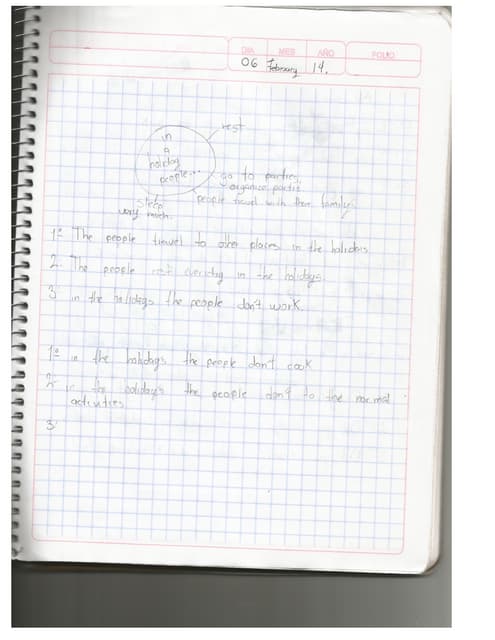 DIA MES AÑO FOLIO
06 February 14.
rest
in
a
holiday
people...
go to parties,
organice partis
people travel with their family
sleep
very much.
1º The people travel to other places in the holidais
2. The people rest everyday in the holidays
3 in the holidays the people don't work.
1º in the holidays the people don't cook
2. in the holidays the people don't to the normal
activities
3